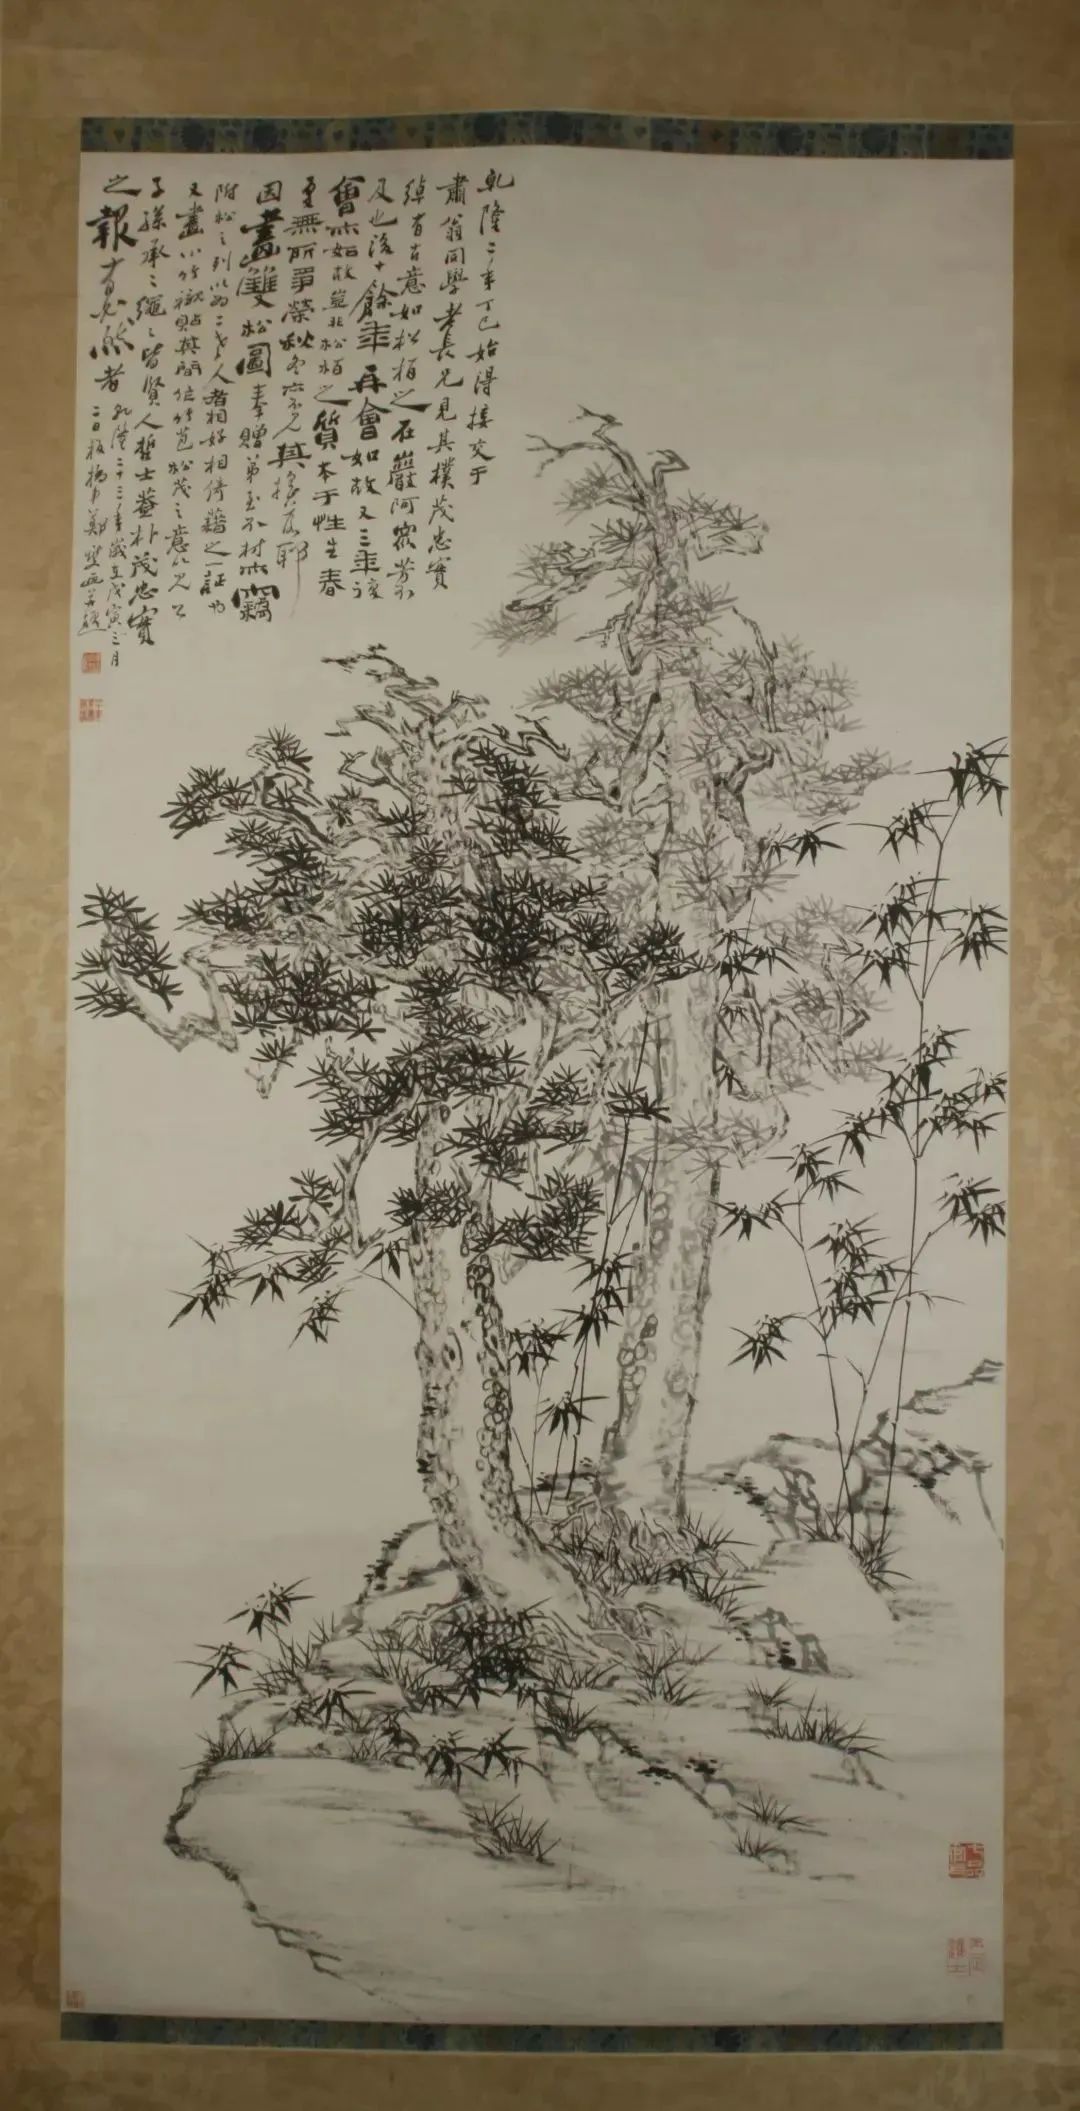 乾隆二年丁巳始得接交于
肅翁同學老長兄見其樸茂忠實
綽有古意如松柏之在巖阿眾芳不
及也後十餘年再會如故又三年復
會亦如故豈非松柏之質本于性生春
夏無所爭榮秋冬亦不見其搖落耶
因畫雙松圖奉贈弟至不材亦竊
附松之列以為二老人者相好相倚藉之一証也
又畫小竹襯貼其間作竹苞松茂之意以見公
子孫承承繩繩皆賢人哲士蓋朴茂忠實
之報有必然者 乾隆二十三年歲在戊寅三月
二日板橋弟鄭燮画并題